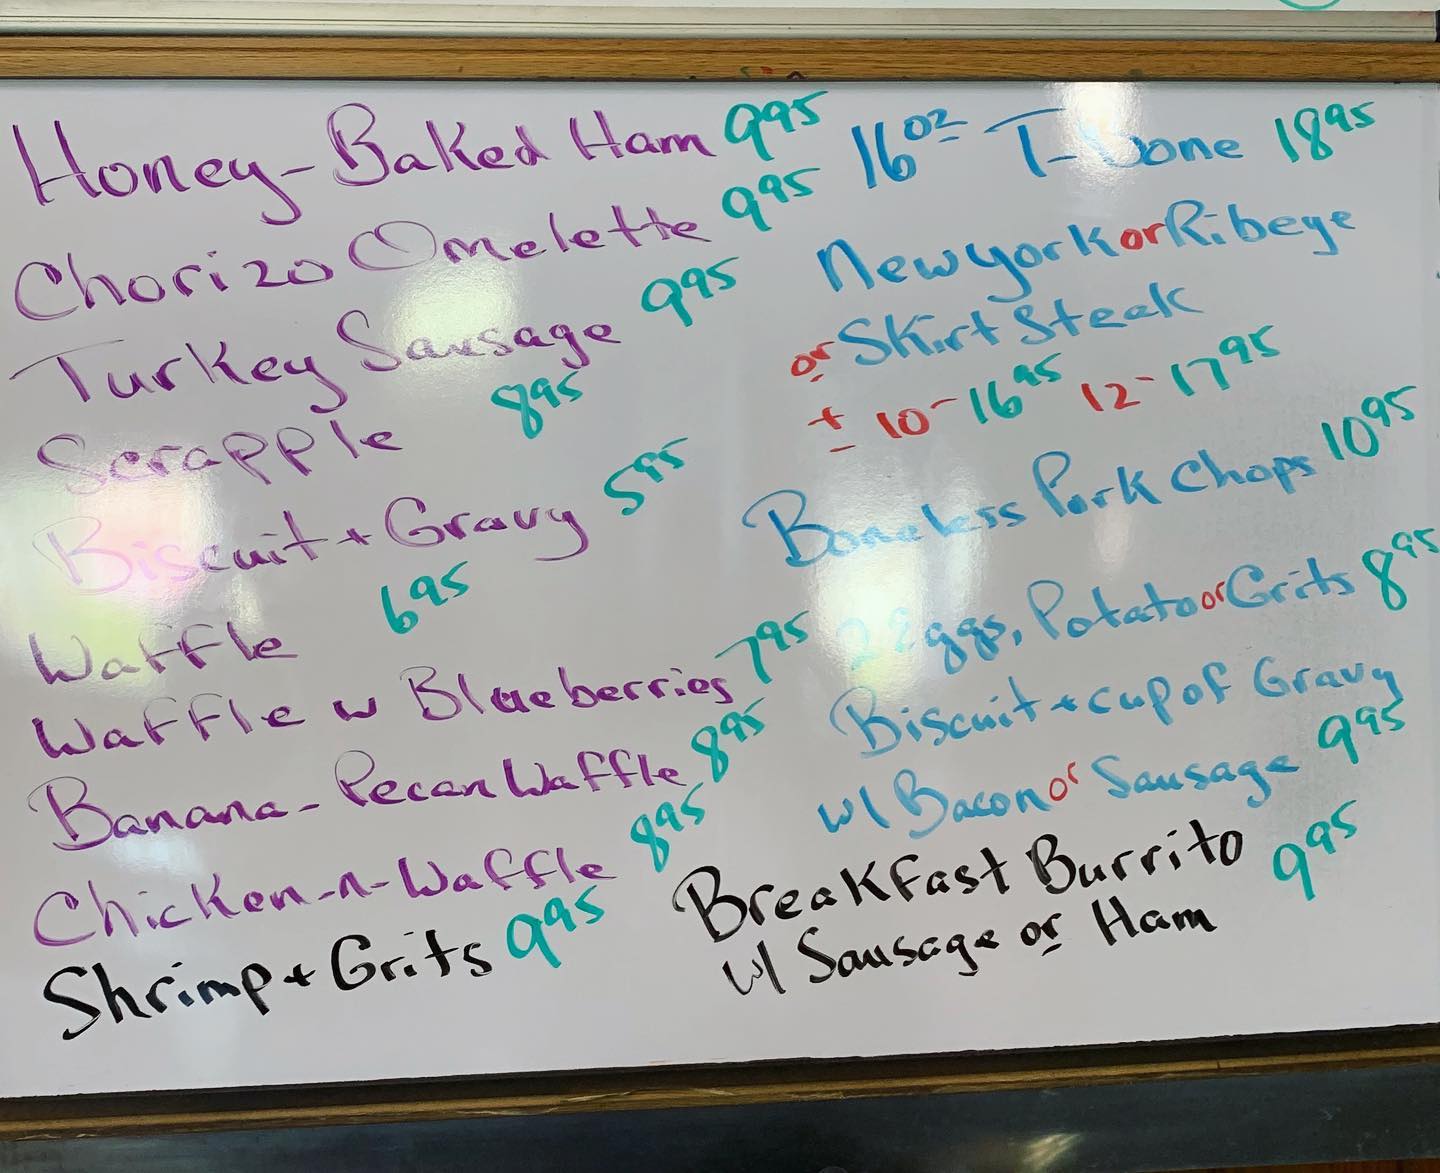 Honey-Baked Ham 9.95
Chorizo Omelette 9.95
Turkey Sausage 9.95
Scrapple 8.95
Biscuit + Gravy 5.95
Waffle 6.95
Waffle w Blueberries 7.95
Banana-Pecan Waffle 8.95
Chicken-n-Waffle 8.95
Shrimp + Grits 9.95
16oz T-Bone 18.95
New York or Ribeye
or Skirt Steak
± 10-16.95 12-17.95
Boneless Pork Chops 10.95
2 Eggs, Potato or Grits 8.95
Biscuit + cup of Gravy
w/ Bacon or Sausage 9.95
Breakfast Burrito 9.95
w/ Sausage or Ham